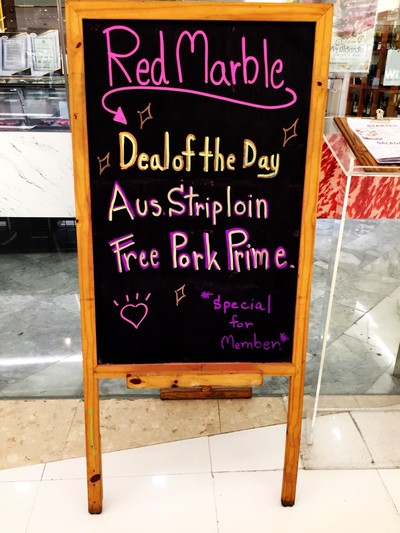 Red Marble
Deal of the Day
Aus. Striploin
Free Pork Prime.
*Special
for
Member*